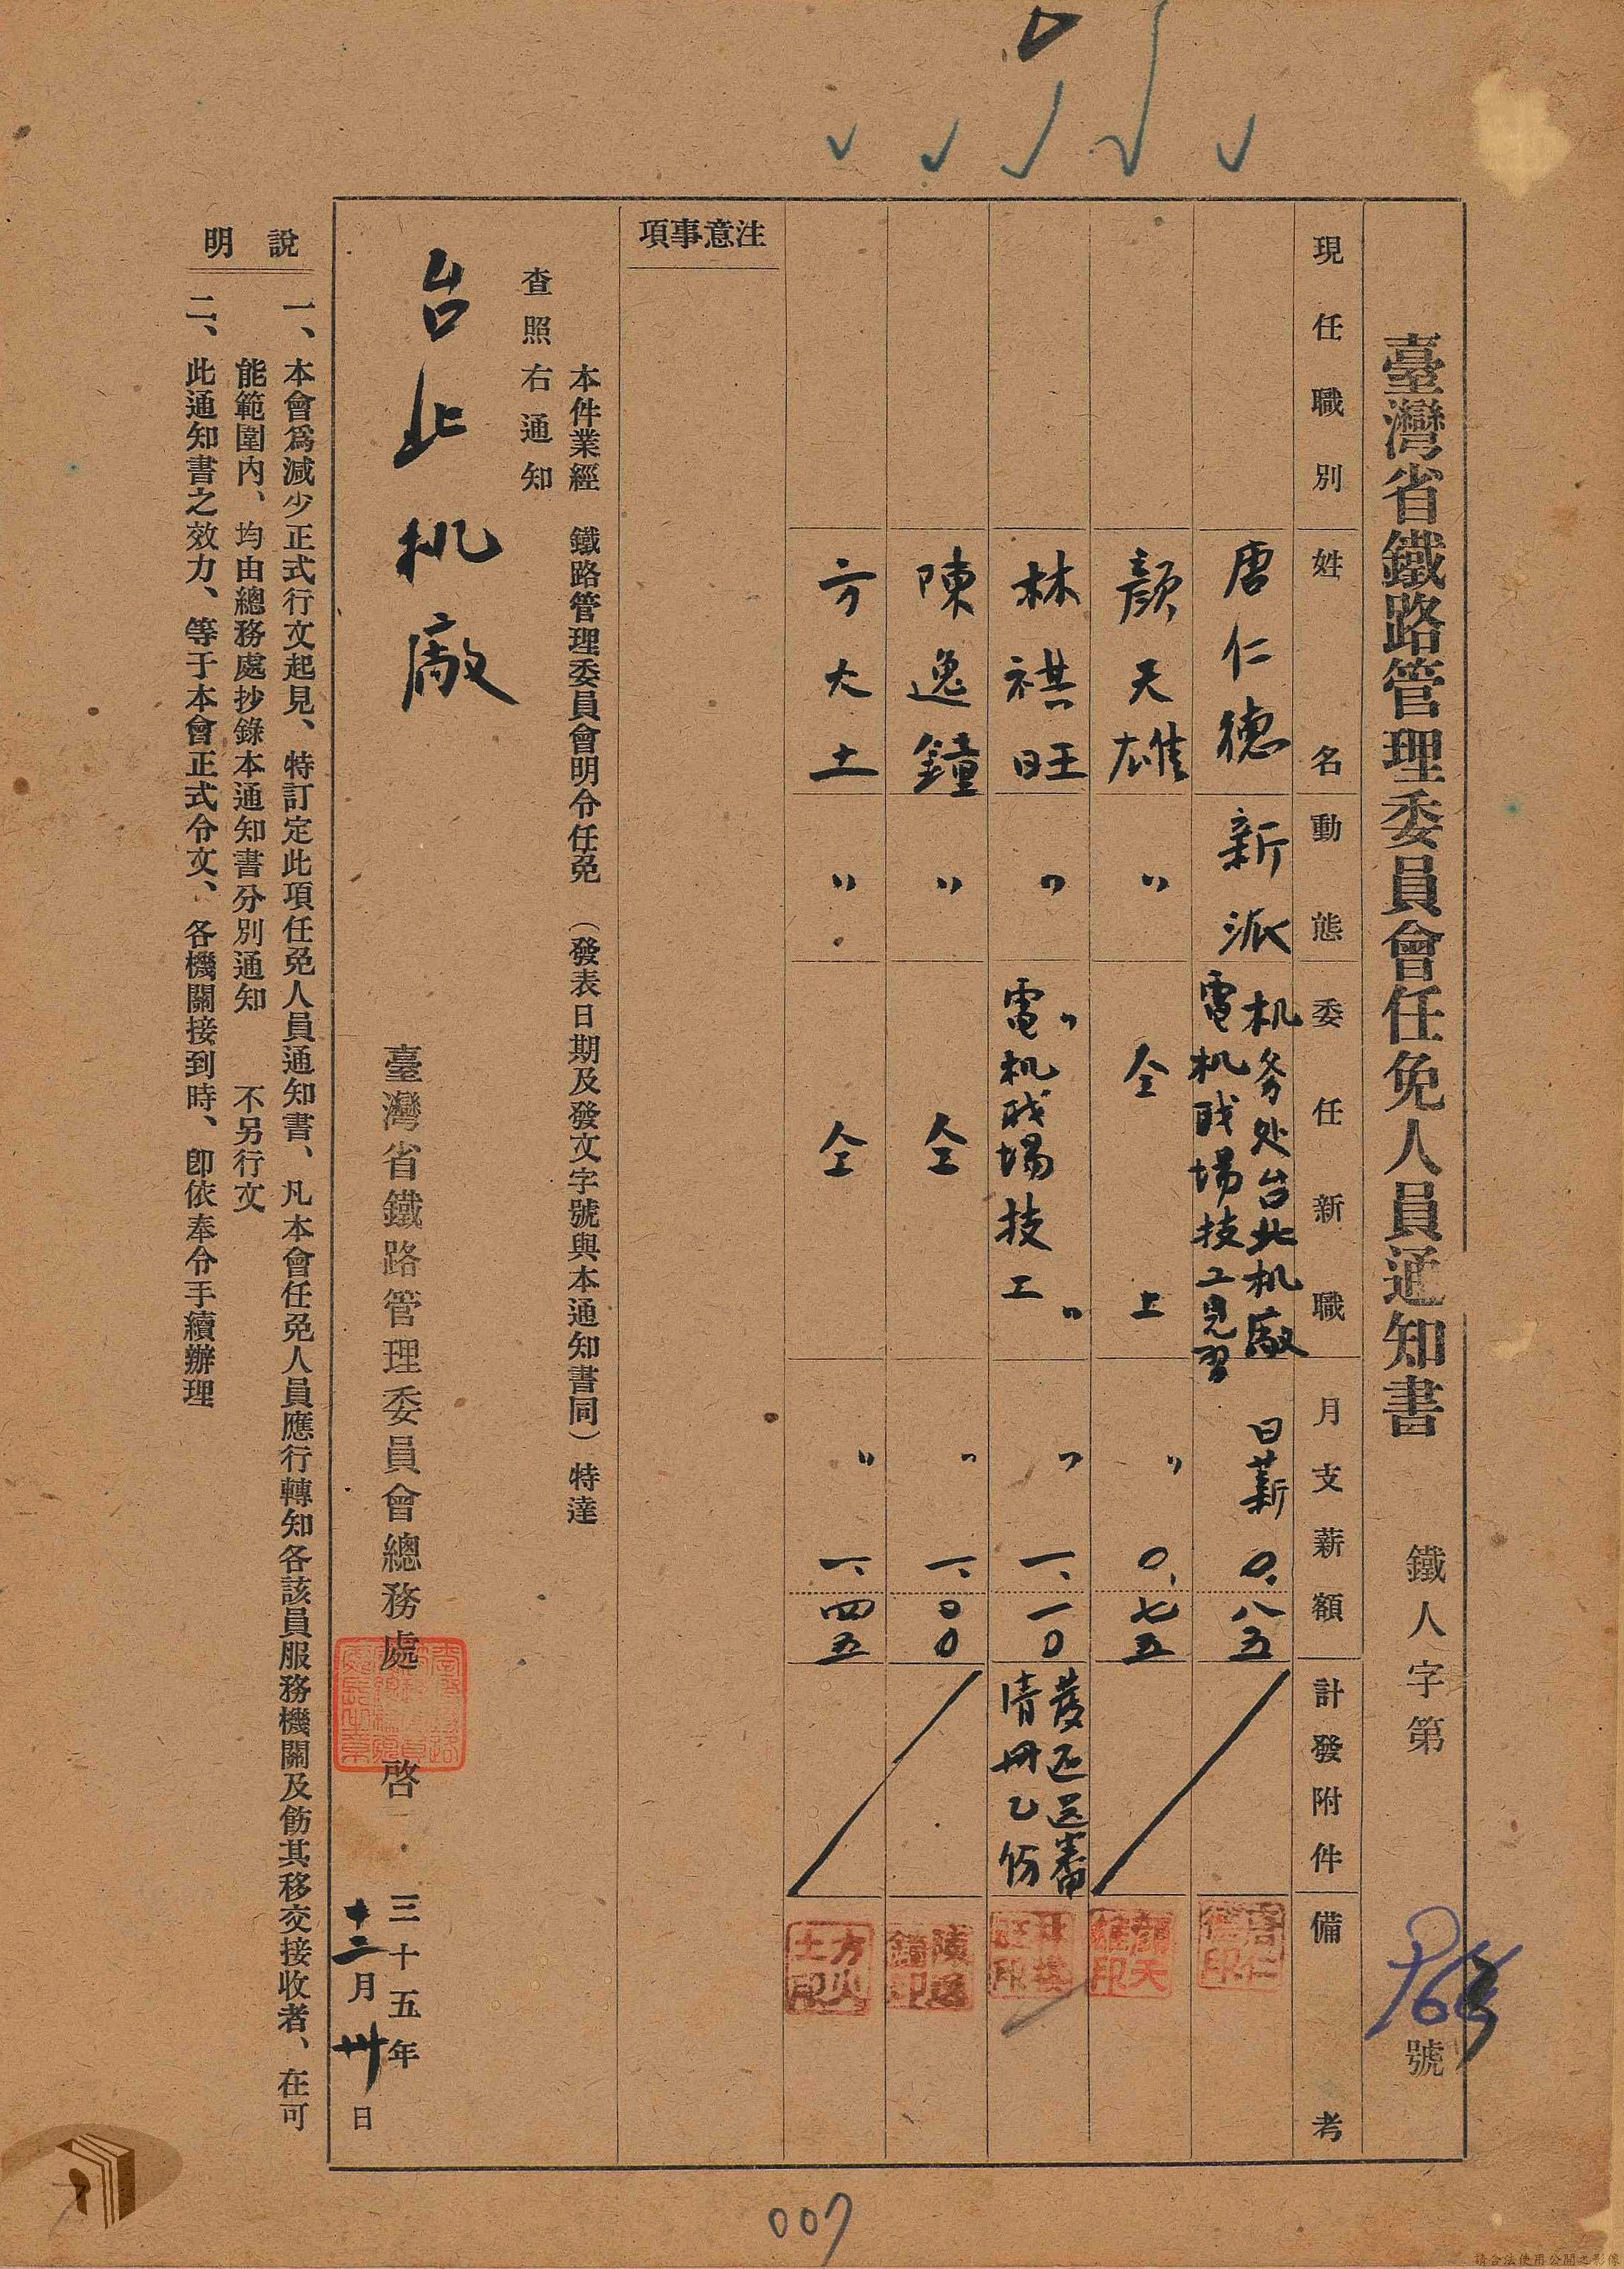 臺灣省鐵路管理委員會任免人員通知書
鐵人字第 號
現任職別 姓名 動態 委任新職 月支薪額 計發附件 備考
唐仁德 新派 机务处台北机廠
電机職場技工見習 日薪 0.八五
顏天雄 〃 仝上 〃 0.七五
林祺旺 〃 〃
電机職場技工〃 〃 一.一0 清冊乙份
陳逸鐘 〃 仝 〃 一.00
方大土 〃 仝 〃 一.四五
注意事項
本件業經 鐵路管理委員會明令任免 (發表日期及發文字號與本通知書同) 特達
查照右通知
台北机廠
臺灣省鐵路管理委員會總務處 啓
三十五年
十二月卅日
說明
一、本會爲減少正式行文起見、特訂定此項任免人員通知書、凡本會任免人員應行轉知各該員服務機關及飭其移交接收者、在可
能範圍內、均由總務處抄錄本通知書分別通知 不另行文
二、此通知書之效力、等于本會正式令文、各機關接到時、卽依奉令手續辦理
007
請合法使用公開之影像